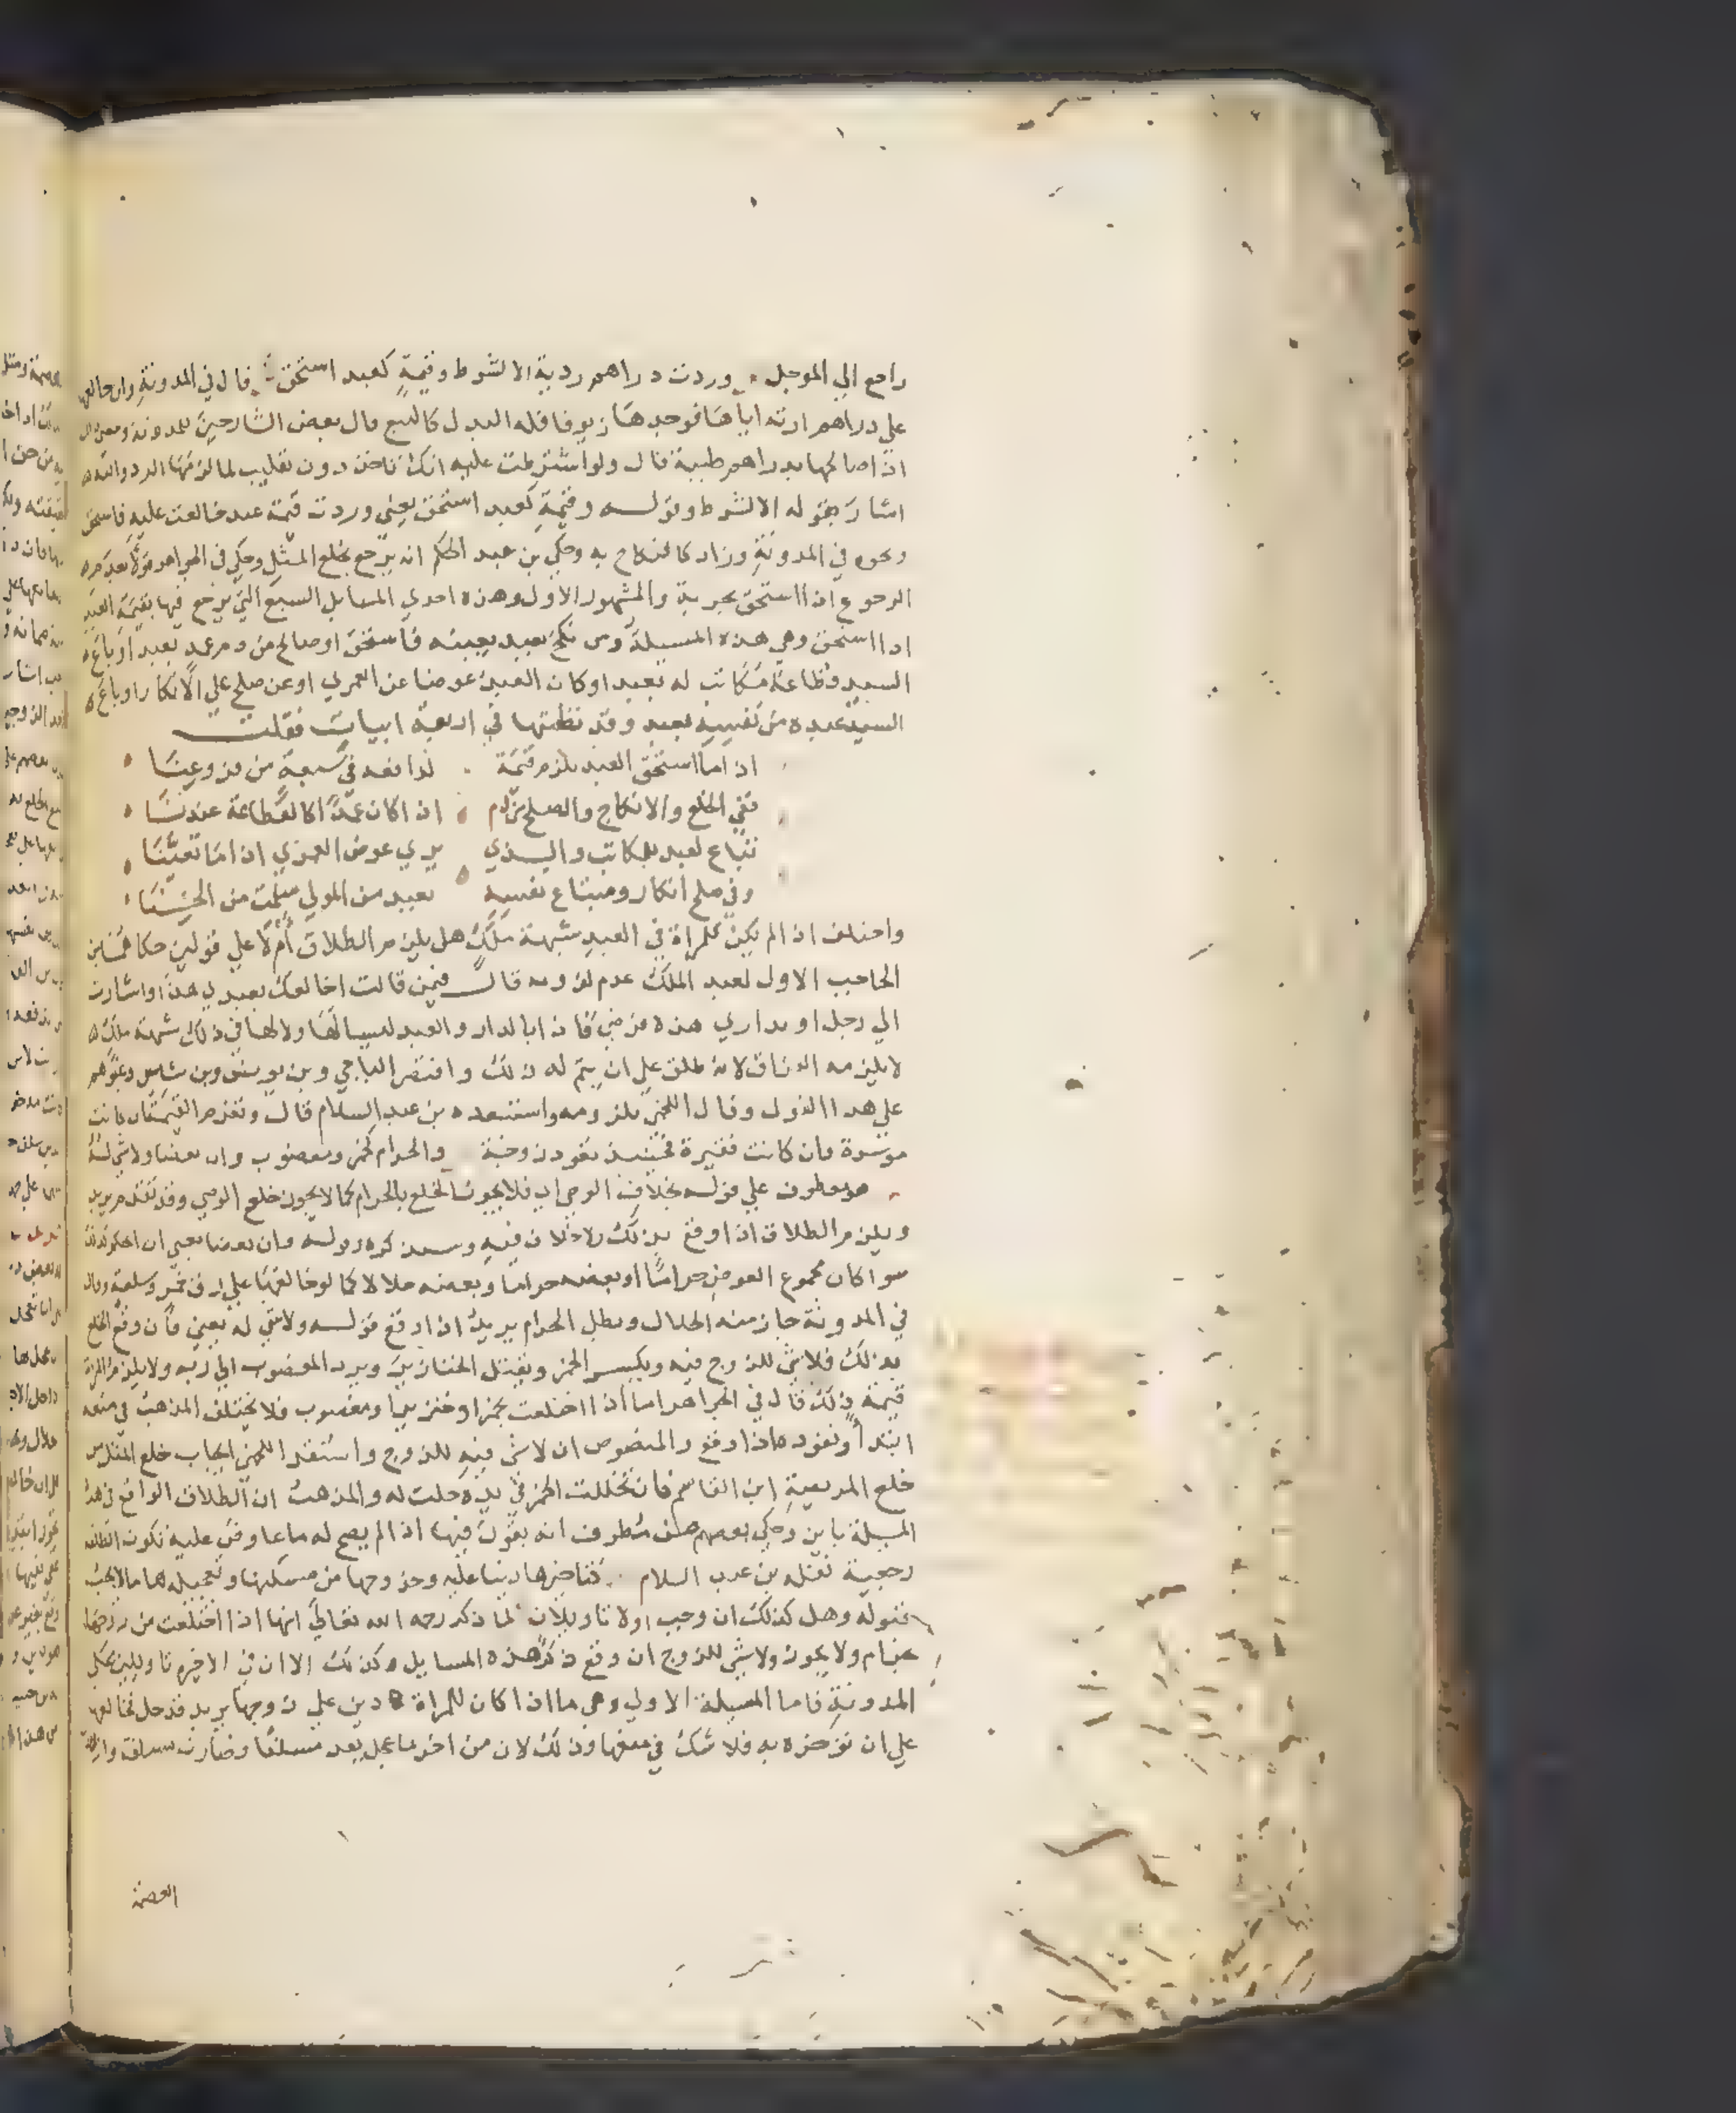 راجع الي الموجل وردت دراهم ردية الا لشرط وقيمة كعبد استحق قال في المدونة وان خالعها
علي دراهم ارته اياها فوجدها زيوفا فله البدل كالبيع قال بعض الشارحين للمدونة ومعنى
اذا صالحها بدراهم طيبة قال ولو اشترطت عليه انك تاخذ دون تقليب لما لزمها الرد والله
اشار بقوله الا لشرط وقوله وقيمة كعبد استحق يعني وردت قيمة عبد خالعت عليه فاستحق
ونحوه في المدونة وزاد كالنكاح به وحكي بن عبد الحكم انه يرجع بخلع المثل وحكي في الجواهر قولا بعدم
الرجوع اذا استحق بحرية والمشهور الاول وهذه احدي المسايل السبع التي يرجع فيها بقيمة العبد
اذا استحق وهي هذه المسيلة ومن نكح بعبد بعينه فاستحق او صالح من دم عمد بعبد او باع
السيد قطاعة مكاتب له بعبد او كان العبد عوضا عن العمري او عن صلح علي الانكار او باع
السيد عبده من نفسه بعبد وقد نظمتها في اربعة ابيات فقلت
اذا ما استحق العبد يلزم قيمة لذا فقد في سبعة من
ففي الخلع والانكاح والصلح من دم اذا كان عمدا كالقطاعة عندنا
تباع لعبد للمكاتب والذي يري عوض العمري اذا ما تعينا
وفي صلح انكار ومبتاع نفسه بعبد من المولي سلمت من
واختلف اذا لم يكن للمراة في العبد شبهة ملك هل يلزم الطلاق ام لا علي قولين حكاهما بن
الحاجب الاول لعبد الملك عدم لزومه قال فيمن قالت اخالعك بعبدي هذا واشارت
الي رجل او بداري هذه فرضي فاذا بالدار والعبد ليسا لها ولا لها في ذلك شبهة ملك
لا يلزمه الفراق لانه طلق علي ان يتم له ذلك واقتصر الباجي وبن يونس وبن شاس وغيرهم
علي هذا القول وقال اللخمي بلزومه واستبعده بن عبد السلام قال وتغرم القيمة ان كانت
موسرة وان كانت فقيرة فحينيذ تعود زوجة والحرام كخمر ومغصوب وان بعضا ولا شي له
هو معطوف علي قوله بخلاف الوصي اي فلا يجوز الخلع بالحرام كما لا يجوز خلع الوصي وقد تقدم
ويلزم الطلاق اذا وقع بذلك ولا خلاف فيه وقوله وان بعضا يعني ان الحكم كذلك
سوا كان مجموع العوض حراما او بعضه حراما وبعضه حلالا كما لو خالعها علي زق خمر وسلعة وقال
في المدونة جاز منه الحلال وبطل الحرام يريد اذا وقع قوله ولا شي له يعني فان وقع الخلع
بذلك فلا شي للزوج فيه ويكسر الخمر ويقتل الخنازير ويرد المغصوب الي ربه ولا يلزم المراة
قيمة ذلك قال في الجواهر اما اذا اختلعت بخمر او خنزير او مغصوب فلا يختلف المذهب في منعه
ابتدا ونفوذه اذا وقع والمنصوص ان لا شي فيه للزوج واستقرا اللخمي ايجاب خلع المثل من
خلع المريضة ابن القاسم فان تخللت الخمر في يده حلت له والمذهب ان الطلاق الواقع في هذه
المسيلة باين وحكي بعضهم عن مطرف انه يقول فيها اذا لم يصح له ما عاوض عليه تكون الطلقة
رجعية نقله بن عبد السلام كتاخيرها دينا عليه وخروجها من مسكنها وتعجيله لها ما لا يجب
قبوله وهل كذلك ان وجب او لا تاويلان لما ذكر رحمه الله تعالي انها اذا اختلعت من زوجها
بحرام ولا يجوز ولا شي للزوج ان وقع ذكر هذه المسايل وكذلك الا ان في الاخيرة تاويلين علي
المدونة فاما المسيلة الاولي وهي ما اذا كان للمراة دين علي زوجها يريد قد حل فخالعها
علي ان توخره به فلا شك في منعها وذلك لان من اخر ما عجل يعد مسلفا وصارت سلفت
العصمة